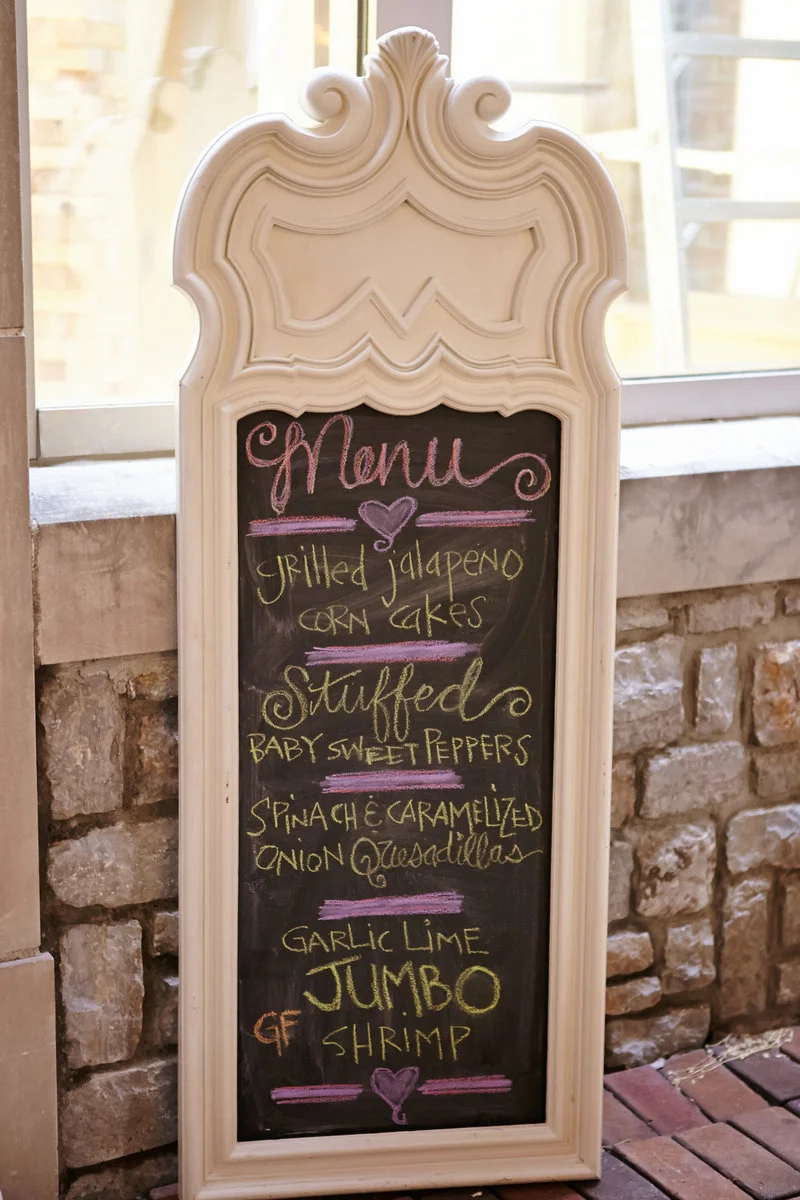 Menu
grilled jalapeno
CORN CAKES
Stuffed
BABY SWEET PEPPERS
SPINACH & CARAMELIZED
ONION Quesadillas
GARLIC LIME
JUMBO
GF SHRIMP